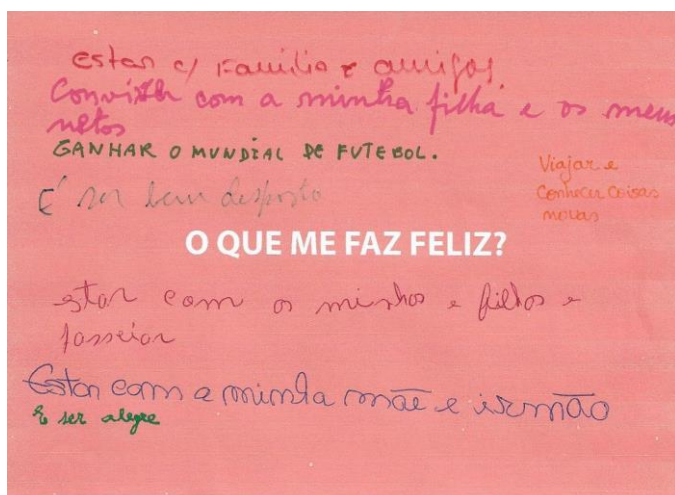 Estar c/ Familia e amigos
Conviver com a minha filha e os meus
netos
GANHAR O MUNDIAL DE FUTEBOL.
Viajar e
Conhecer Coisas
novas
É ser bem disposto
O QUE ME FAZ FELIZ?
estar com os minhos e filhos e
passeiar
Estar com a minha mãe e irmão
E ser alegre